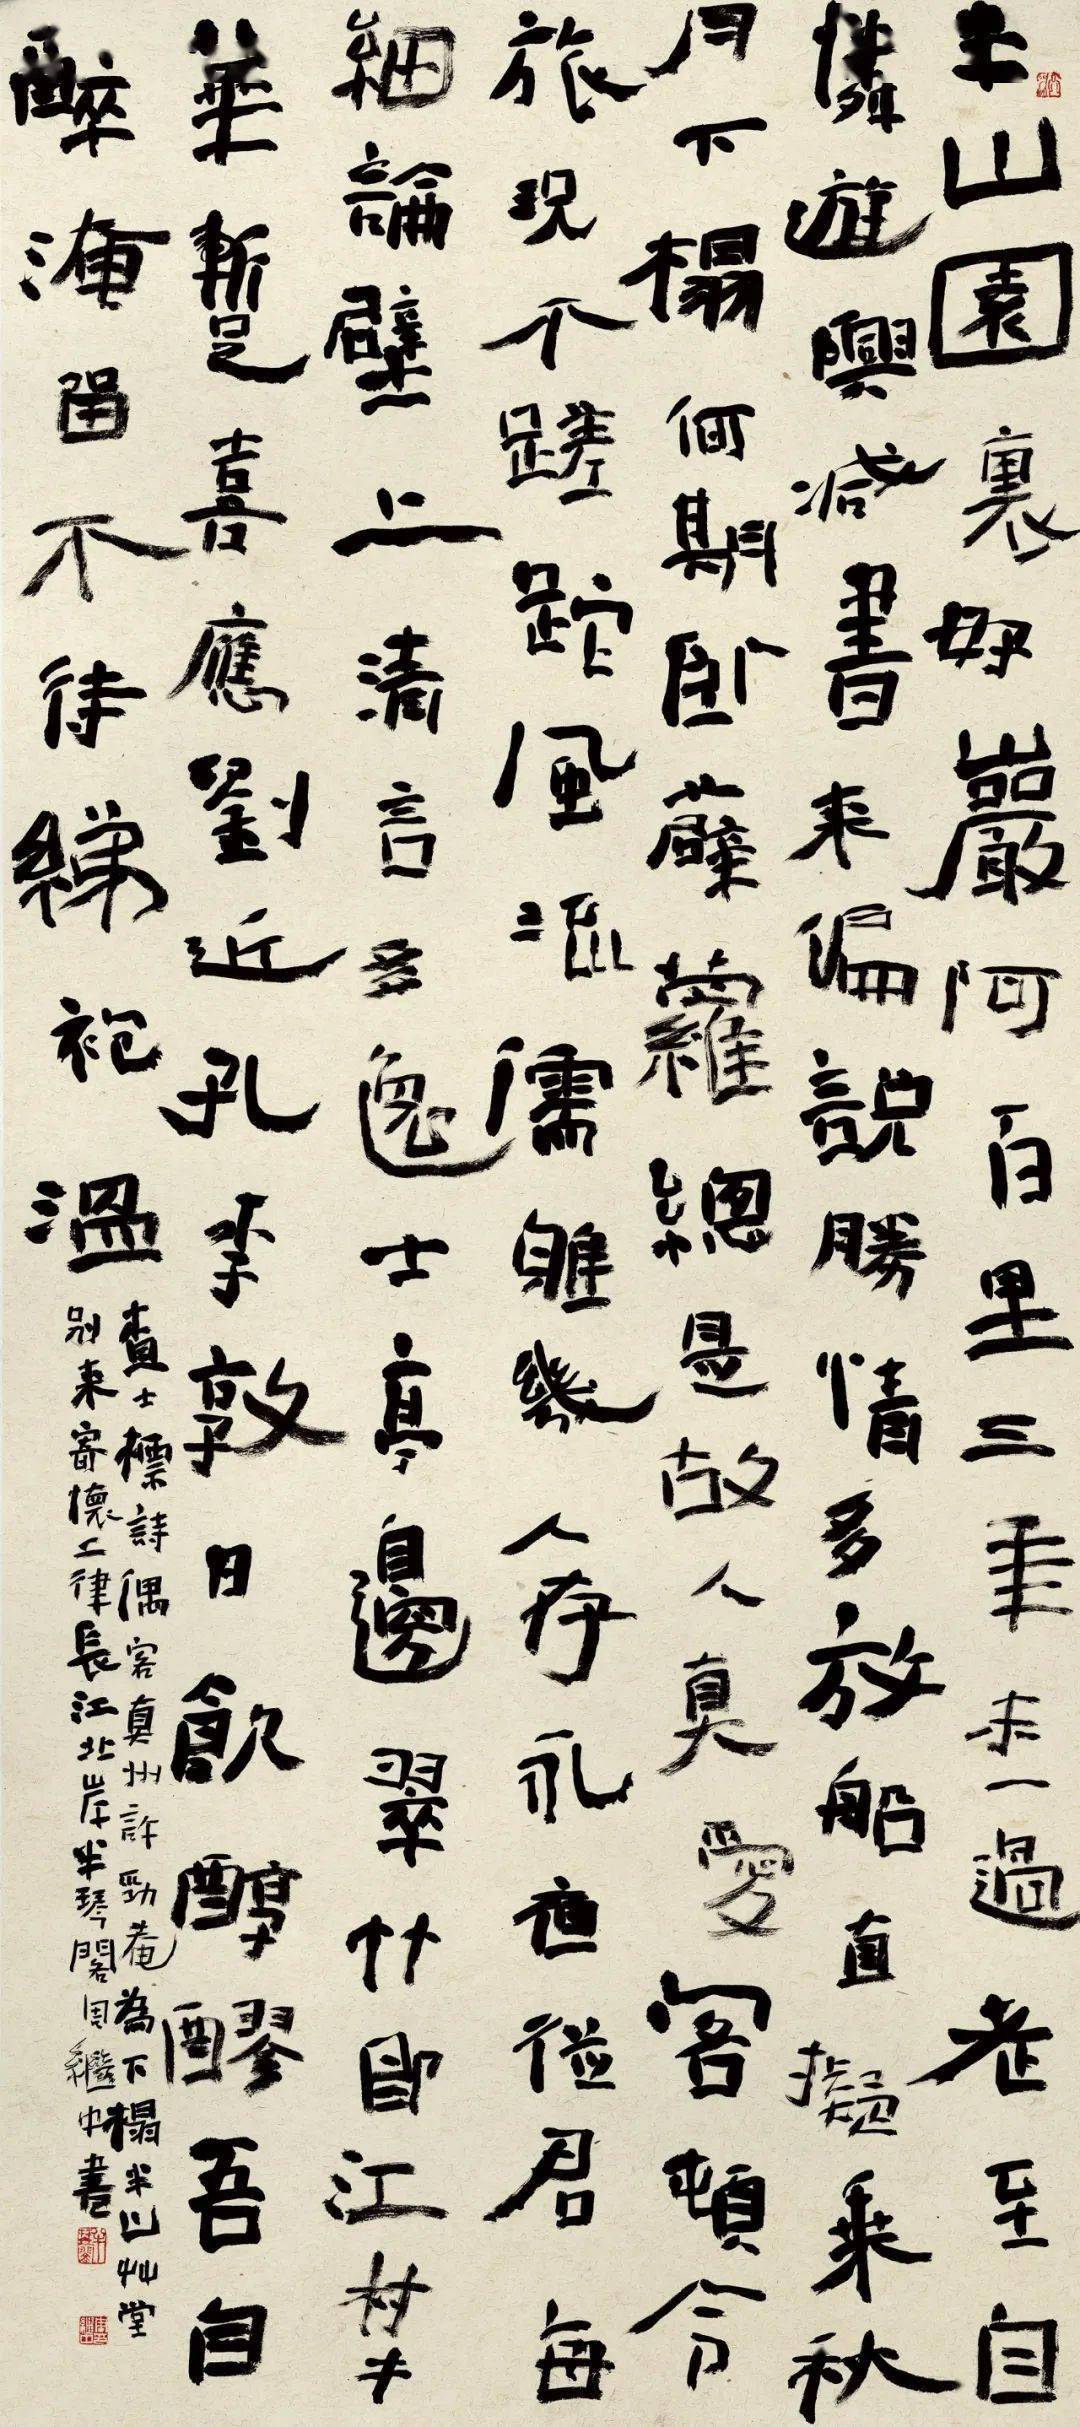 半山園裏好巖阿百里三年未一過老至自
憐遊興減書来偏説勝情多放船直擬乘秋
月下榻何期卧薜蘿總是故人真愛客頓令
旅況不蹉跎風流儒雅幾人存永夜從君每
細論壁上清言多逸士亭邊翠竹即江村才
華暫足喜應劉近孔李敦日飲醇醪吾自
醉淹留不待綈袍溫
查士標詩偶客真州許勁菴為下榻半山艸堂
別来寄懷二律長江北岸半琴閣周繼中書